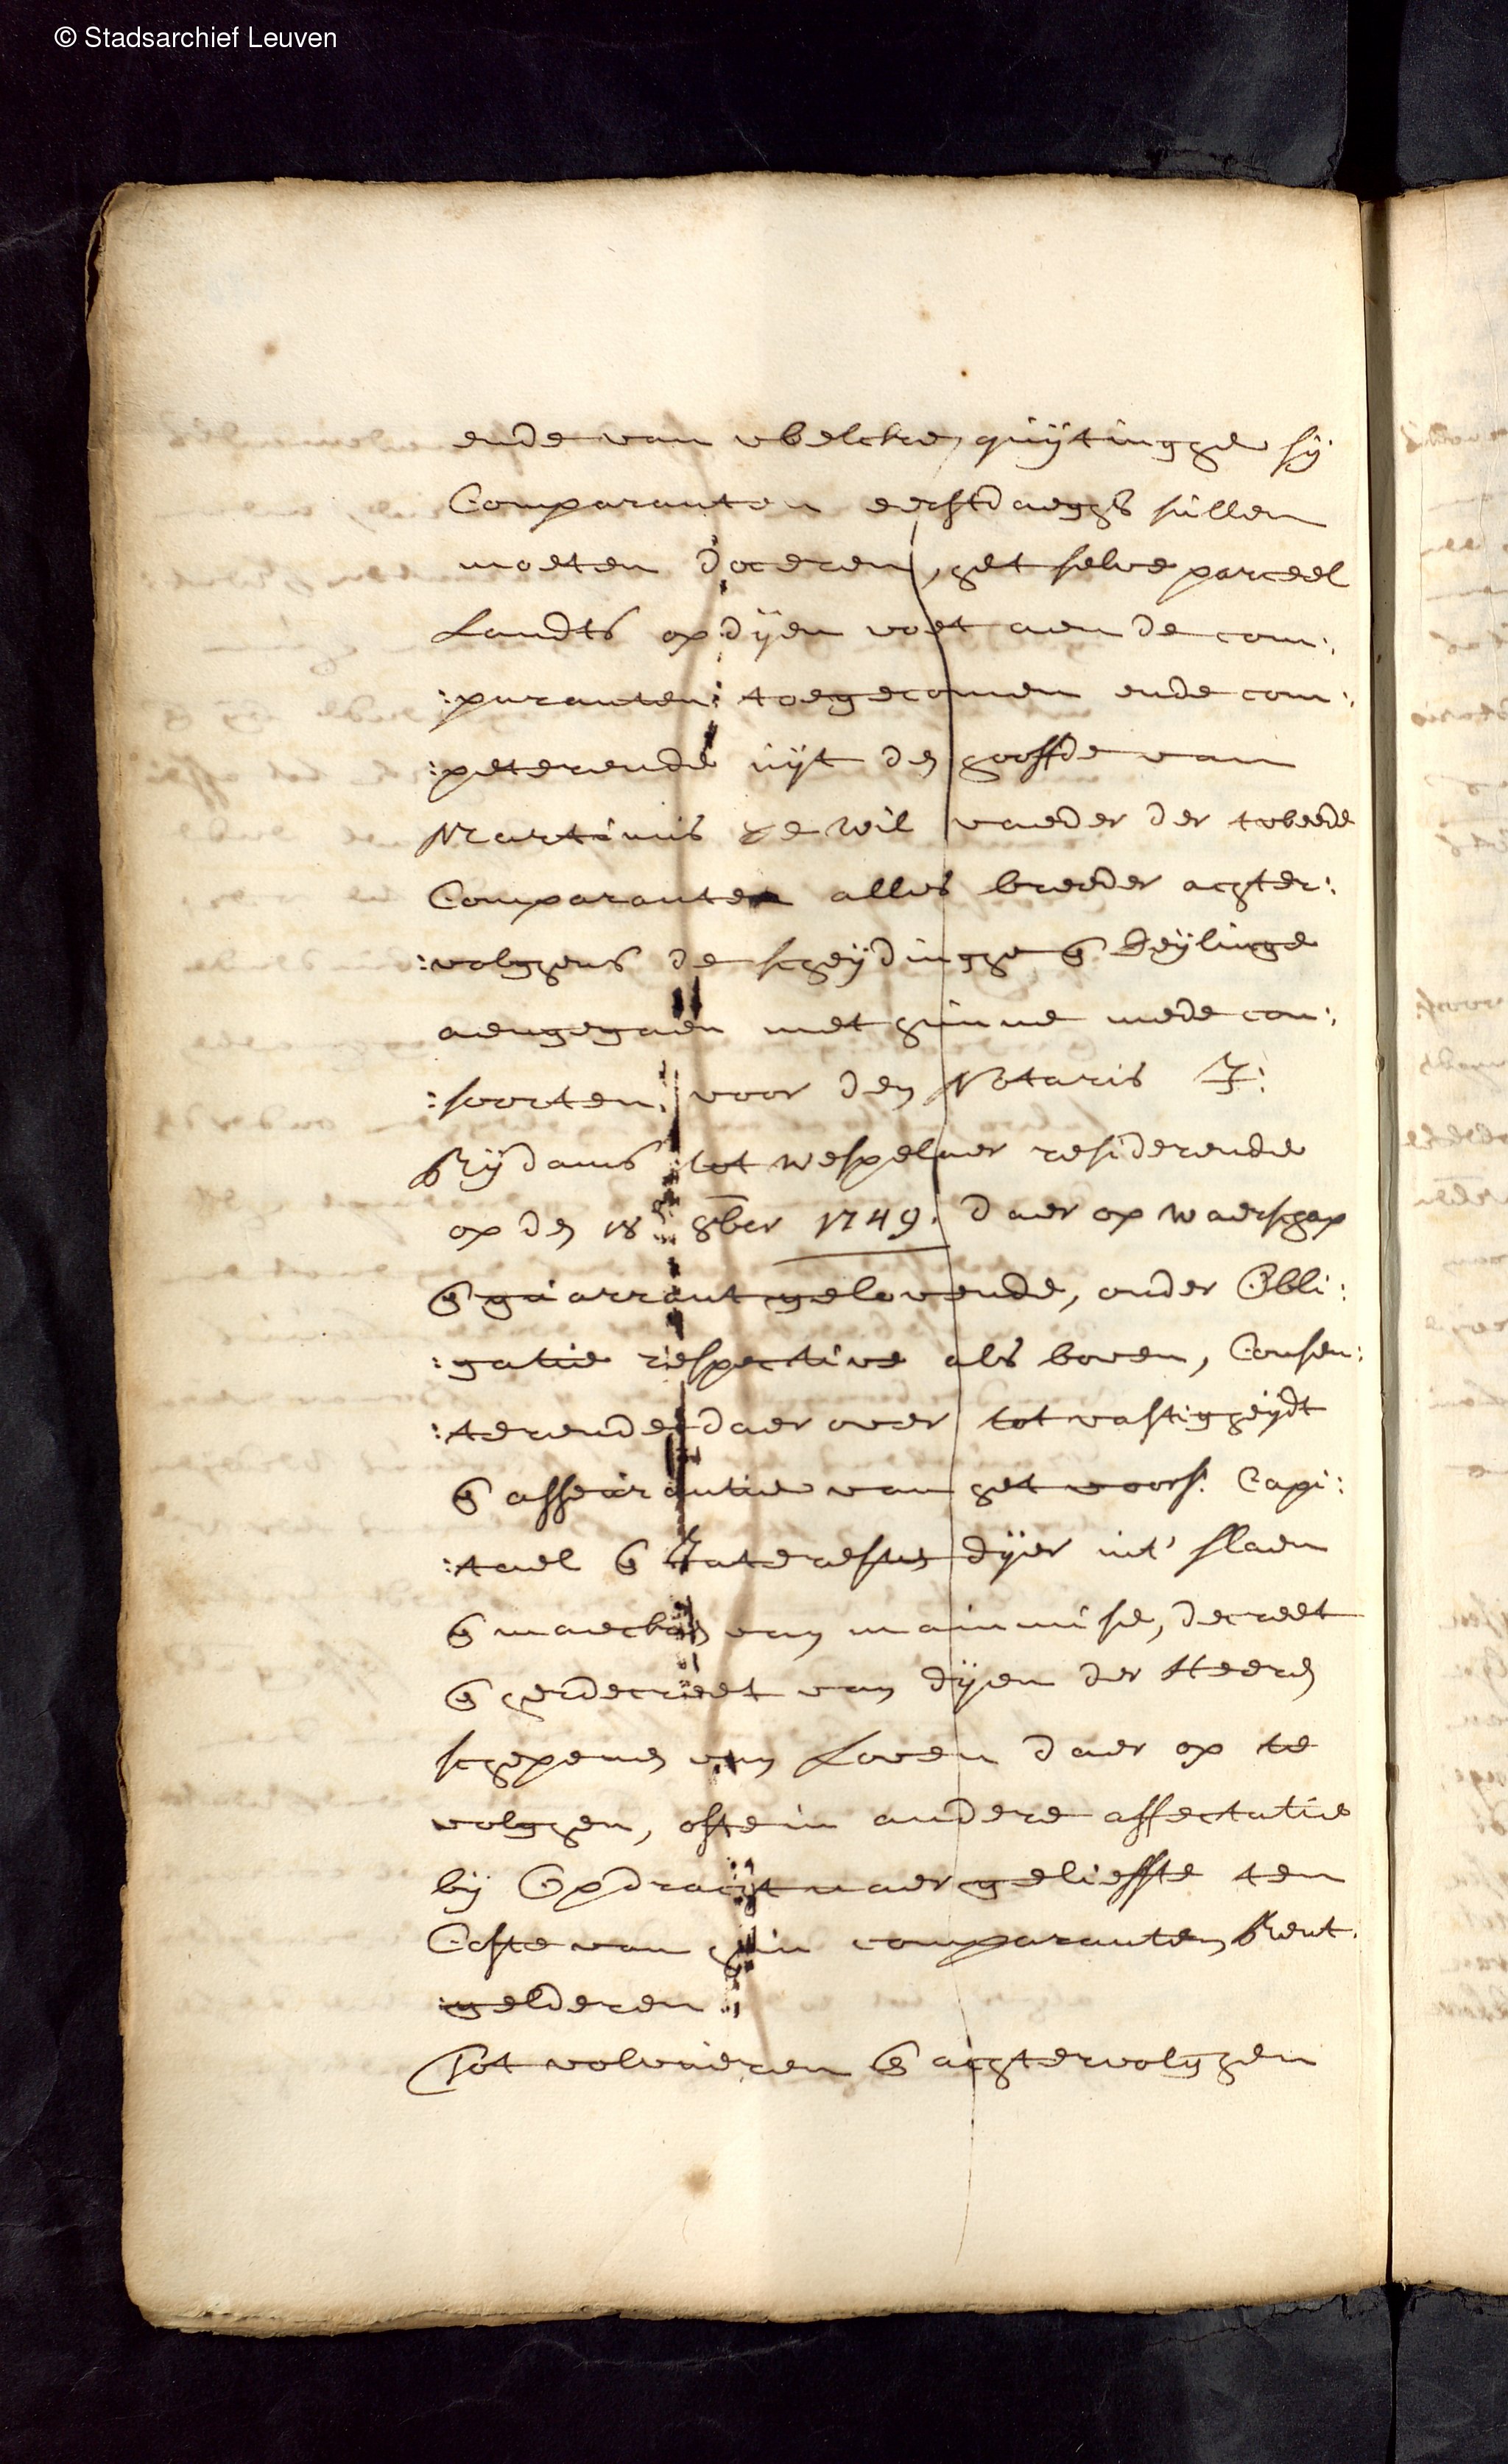 © Stadsarchief Leuven
ende van welcke quijtinghe sij
Comparanten eerstdaeghs sullen
moeten doceren, het selve parceel
Landts op dijen voet aen de com:
:paranten toegecomen ende com:
:peterende uijt den hooffde van
Martinus de Wil vaeder der tweede
Comparante alles breeder achter:
:volghens de scheijdinghe & deijlinge
aengegaen met hunne mede con:
:soorten voor den Notaris J:
Rijdams tot Wespelaer residerende
op den 18 8ber 1749. daer op waerschap
& guarrant gelovende, onder Obli:
:gatie respective als boven, Consen:
:terende daer over tot vastigheijdt
& asseurantie van het voors: Capi:
:tael & Interesten dijer int' slaen
& maecken van mainmise, decreet
& herdecreet van dijen der Heeren
schepenen van Loven daer op te
volghen, ofte in andere affectatie
bij Opdracht naer geliefste ten
Coste van hun comparanten Rent
:gelderen
Tot volvueren & achtervolghen